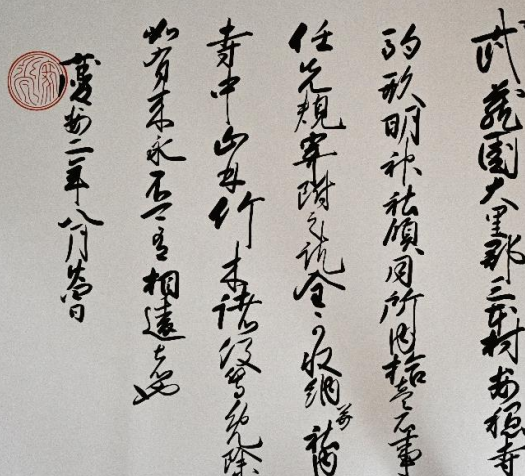 武蔵國大里郡三本村安穏寺
駒形明神社領同所内拾壱石事
任先規寄附之訖全可収納并社内
寺中山林竹木諸役等免除
如有来永不可有相違者也
慶安二年八月廿四日